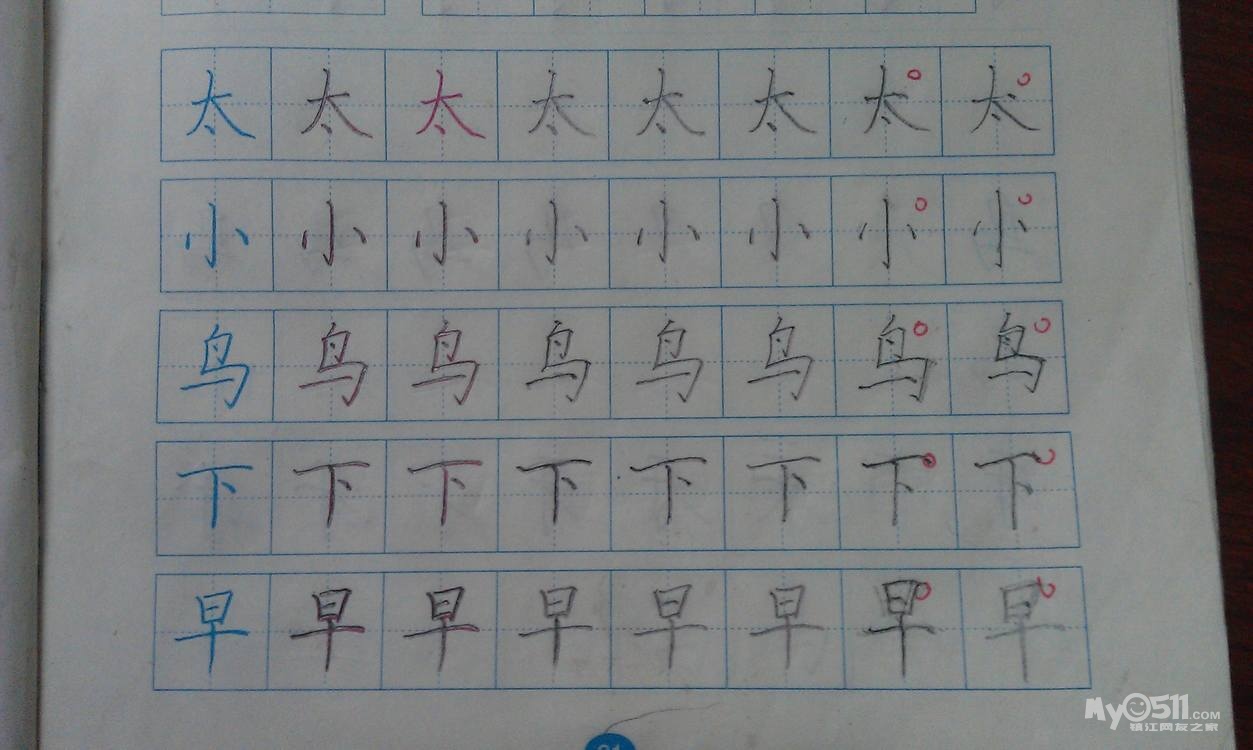 太太太太太太太太
小小小小小小小小
鸟鸟鸟鸟鸟鸟鸟鸟
下下下下下下下下
早早早早早早早早
My0511.COM
镇江网友之家